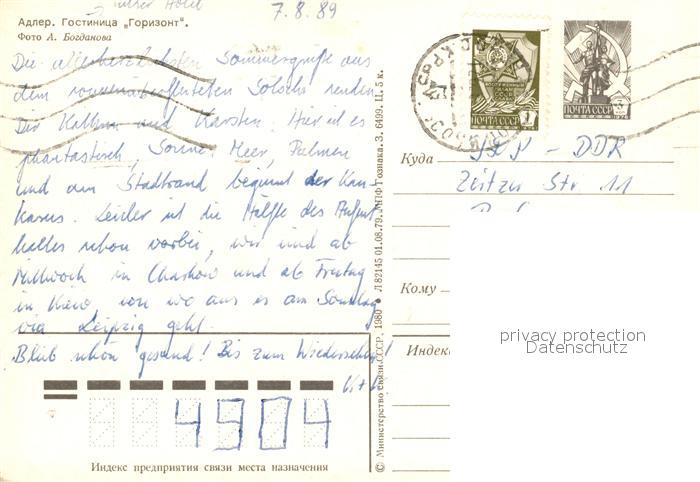 Hotel
7.8.89
Адлер. Гостиница „Горизонт“.
Фото А. Богданова
Die allerherzlichsten Sommergrüße aus
dem Sotschi senden
Dir Kathrin und Karsten. Hier ist es
phantastisch, Sonne, Meer, Palmen
und am Stadtrand beginnt der Kau-
kasus. Leider ist die Hälfte des
schon vorbei, wir sind ab
Mittwoch in Charkow und ab Freitag
in Kiew von wo aus es am Sonntag
via Leipzig geht.
Bleib schön gesund! Bis zum Wiedersehen!
K.+K.
4904
Индекс предприятия связи места назначения
© Министерство связи СССР, 1980 ● Л 82145 01.08.79. МПФ Гознака. З. 6499. Ц. 5 к.
ПОЧТА СССР
1
ПОЧТА СССР
3
Куда
DDR
Zeitzer Str. 11
Кому
Индекс
privacy protection
Datenschutz